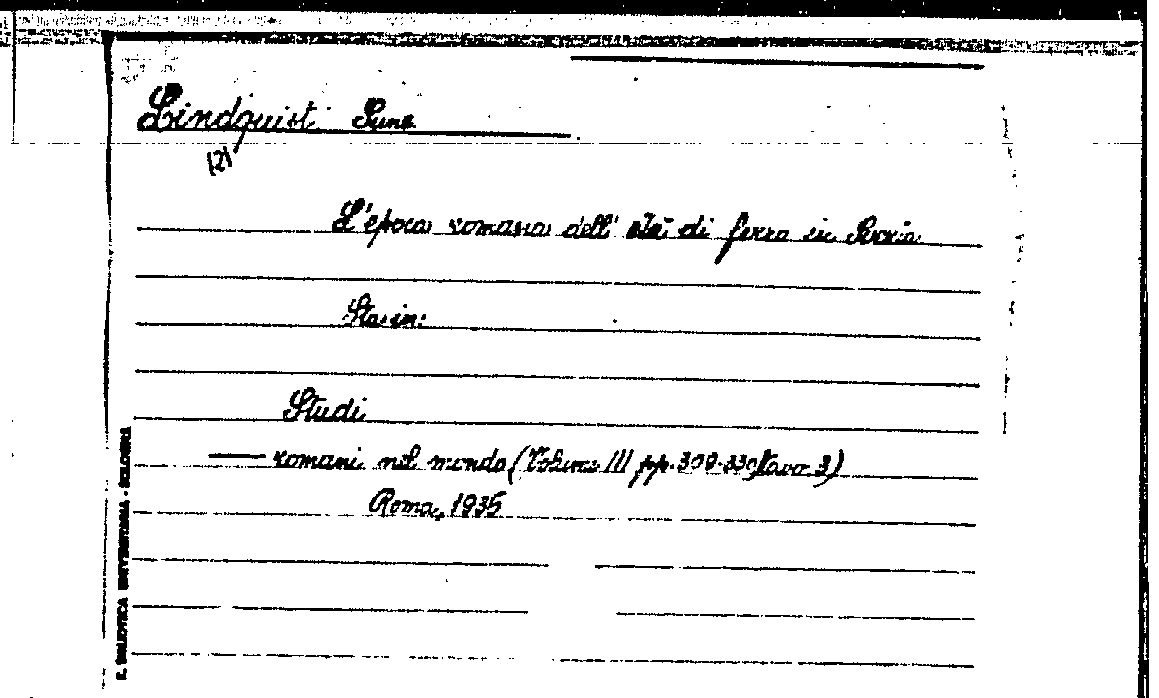 Lindquist Sune
(2)
L'epoca romana dell' età di ferro in Svezia
Sta in:
Studi
— romani nel mondo (Volume III pp. 309-330, tavv. 3)
Roma, 1935
R. BIBLIOTECA UNIVERSITARIA - BOLOGNA